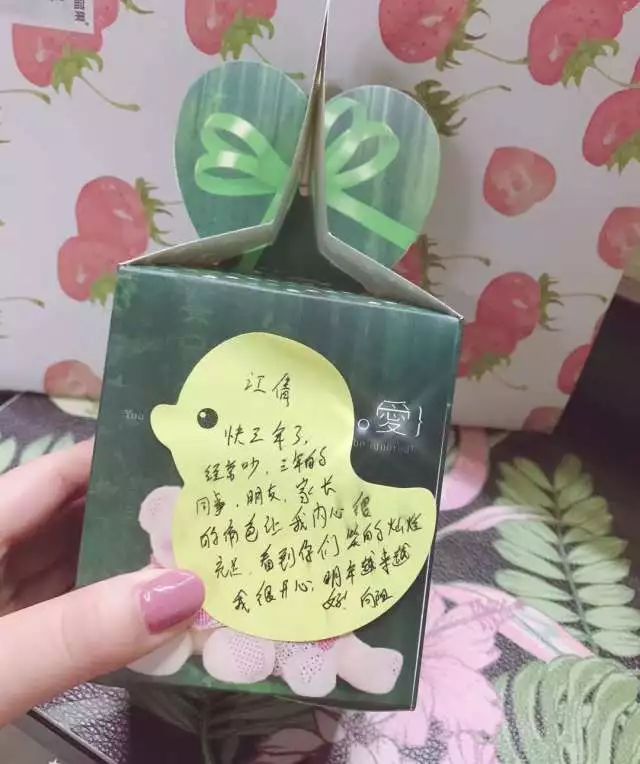 江倩
快三年了，
经常吵，三年的
同事、朋友、家长
的角色让我内心很
充足，看到你们笑的灿烂
我很开心，明年越来越
好！
。爱}
You